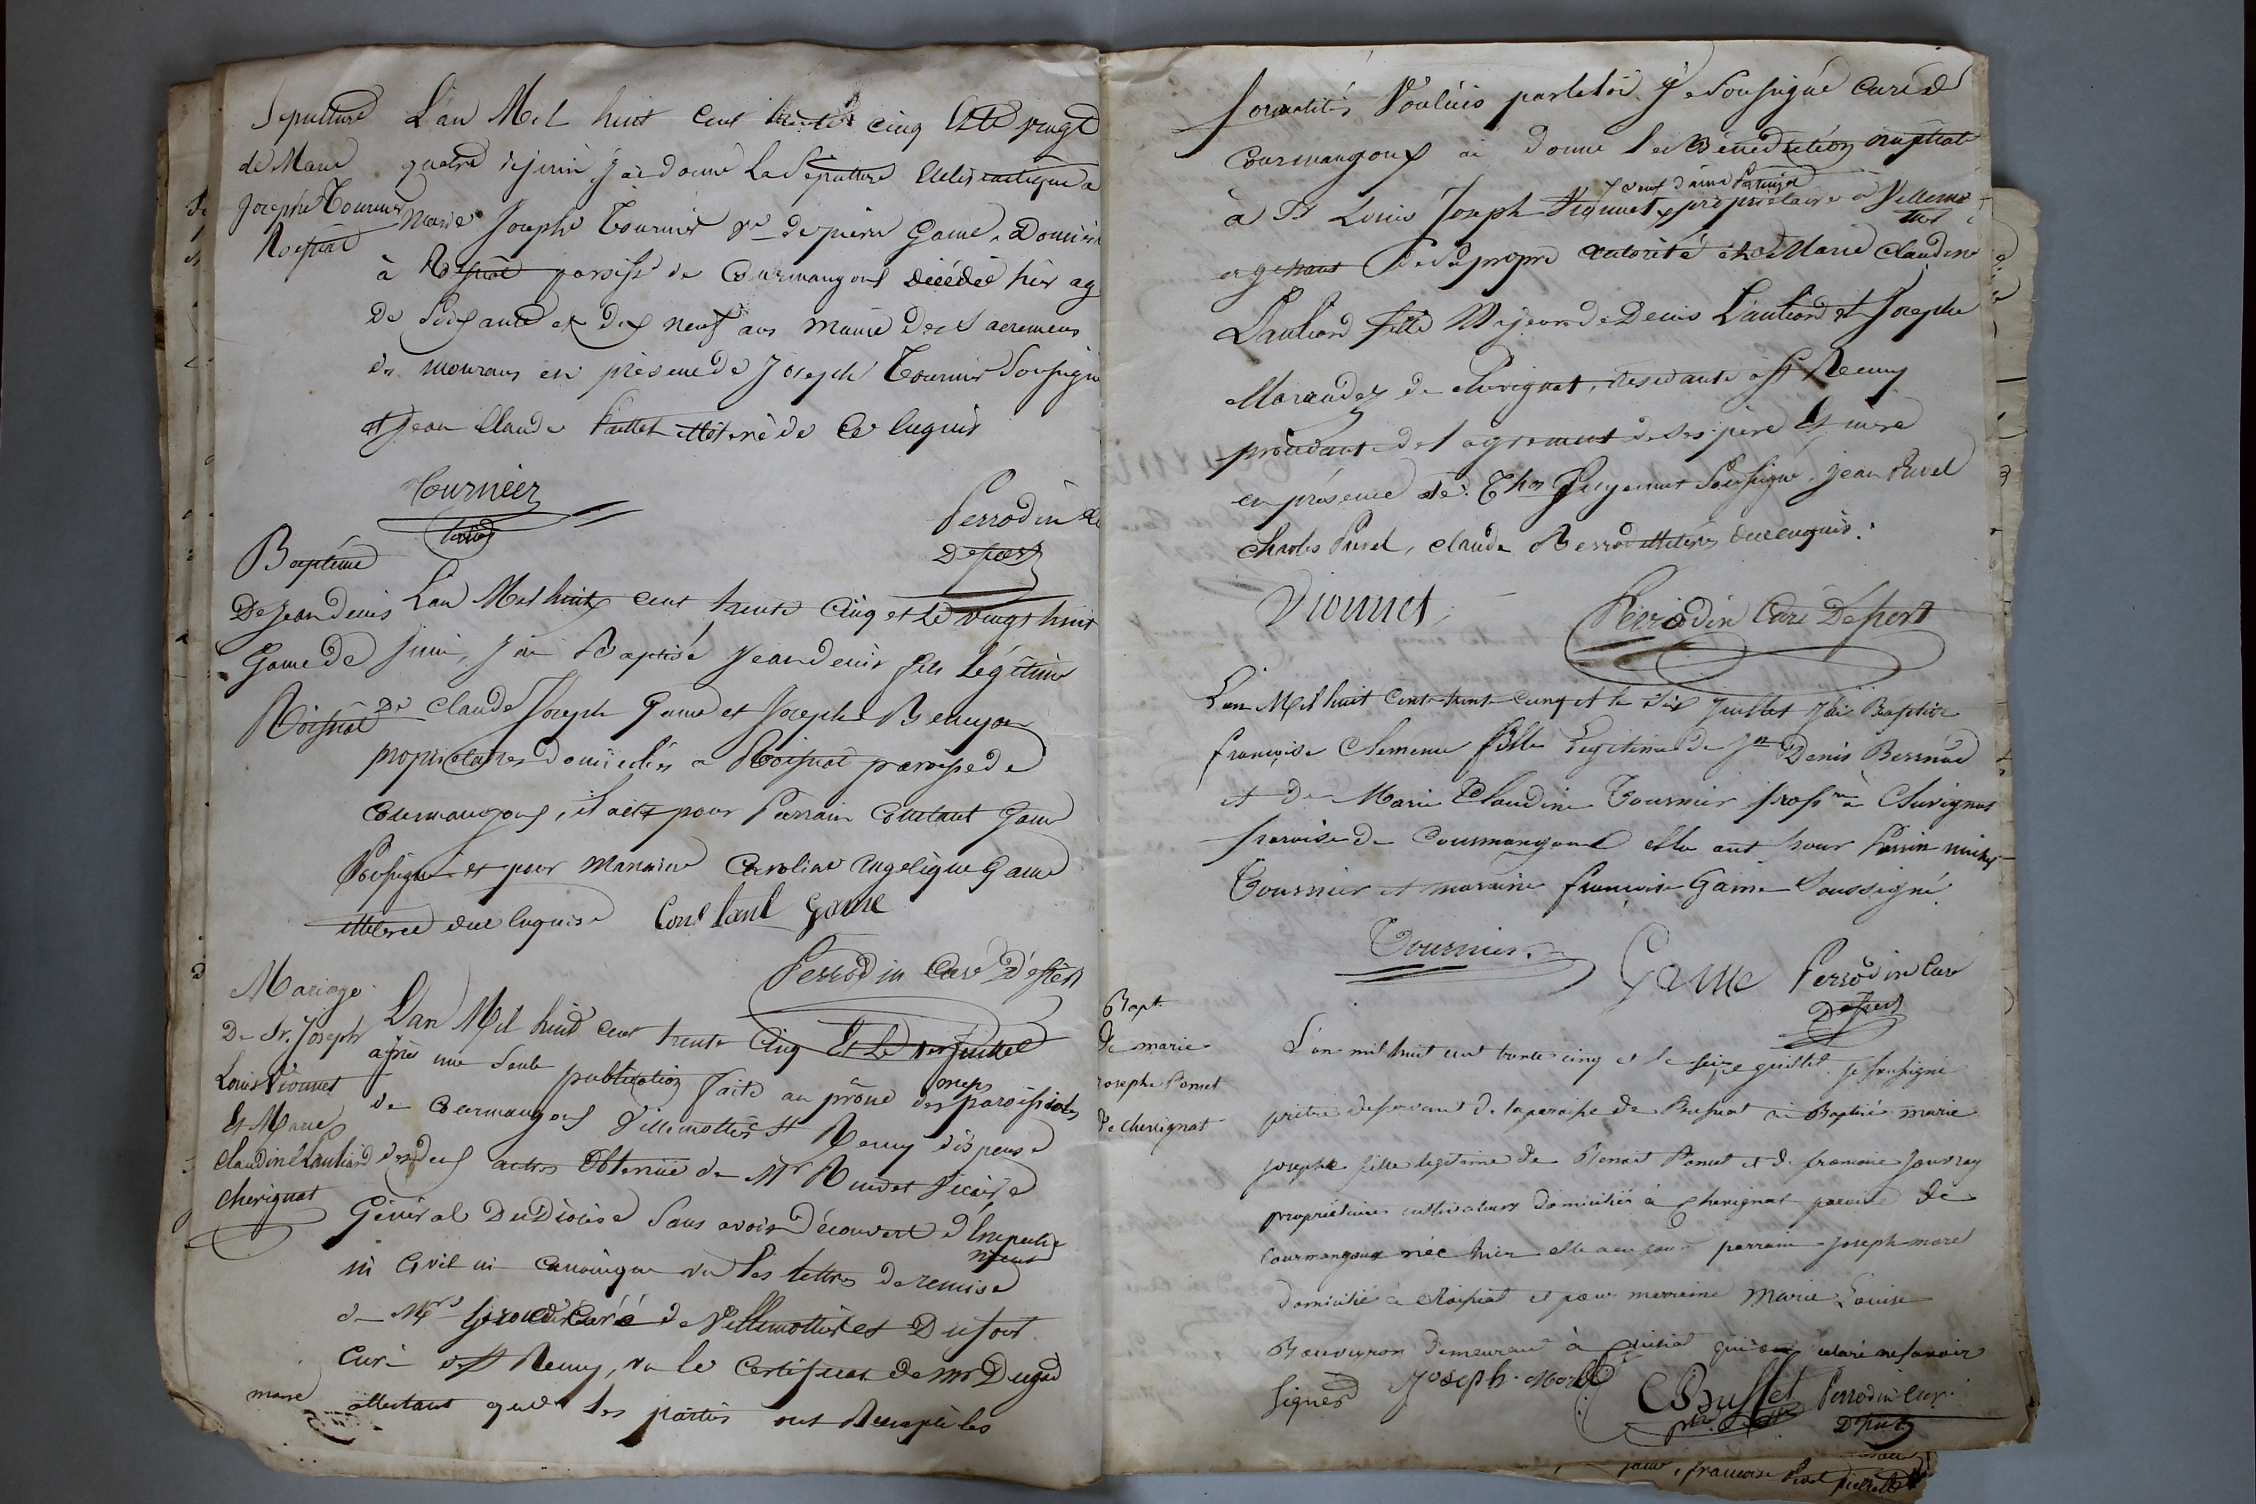 Sepulture
de Marie
Josephe Tournier
Roissiat
L'an Mil huit cent trente cinq et le vingt
quatre de juin j'ai donné La Sepulture Ecclésiastique a
Marie Josephe Tournier Ve de pierre Game, Domicilié
à Roissiat paroisse de Courmangoux décédée hier ag
De Soixante et dix neuf ans munie des Sacremens
des mourans en présence de Joseph Tournier Soussigné
et Jean Claude illétéré de ce Enquis
Tournier
Perrodin
Dessert
Baptême
De Jean denis
Game De
Roissiat
L'an Mil huit cent trente Cinq et Le vingt huit
Juin, J'ai Baptisé Jean denis fils Légitime
De Claude Joseph Game et Josephe Benuyon
propriétaires domiciliés a Roissiat paroisse de
Courmangoux, il a eu pour Parrain Constant Game
Soussigné et pour Marraine Caroline Angelique Game
illétérée due Enquise Constant Game
Perrodin Curé Dessert
Mariage
De Sr. Joseph
Louis Vionnet
Et Marie
Claudine Lauliard
Chevignat
L'an Mil huit cent trente Cinq Et Le 1er Juillet
après une Seule publication faite au prône des messes paroissiales
de Courmangoux Villemottier St Remy dispense
des deux autres Obtenüe de Mr Ruivet Vicaire
Général Du Diocèse Sans avoir Découvert d'Empeche
ment
ni Civil ni Canonique vu les lettres de remise
de Mrs Curé de Villemottier et Dufour
Curé de St Remy, vu le Certificat de mr
attestant que les parties ont Rempli les
formalités Voulües par la loi. Je Soussigné Curé de
Courmangoux ai donné la Bénédiction nuptiale
à Sr Louis Joseph Vionnet propriétaire à Villemo
tier
agissant de Sa propre autorité et de Marie Claudine
Lauliard fille Majeure de Denis Lauliard et Josephe
Marandez de Chevignat, residante à St Remy
procédant de l'agrement de Ses père Et mère
en présence de Thos Soussigné, Jean Puvel
Charles Puvel, Claude illétérés due enquis.
Vionnet
Perrodin Curé Dessert
L'an Mil huit Cent trente Cinq et le Six Juillet J'ai Baptisé
françoise Clemence fille Legitime de Jn Denis Bernard
et de Marie Claudine Tournier propres à Chevignat
paroisse de Courmangoux elle a eut pour Parrin
Tournier et maraine françoise Game Soussigné.
Tournier
Game
Perrodin Curé
Dessert
Bapt
de marie
josephe Ponsut
de chevignat
L'an mil huit cent trente cinq et le seize juillet je soussigné
prêtre desservant de la paroisse de ai Baptisé marie
josephe fille legitime de Benoit Ponsut et de francoise
propriétaires cultivateurs domiciliés à chevignat paroisse de
Courmangoux née hier elle a eu pour parrain joseph morel
domicilié à Roissiat et pour marraine Marie Louise
demeurant à qui a déclaré ne savoir
signer Joseph Morel
CBuffet
Perrodin Curé
Dessert